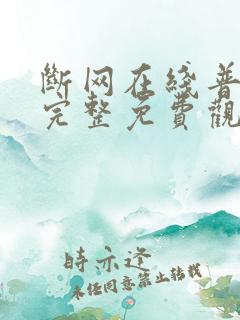 斷网在綫普
完整免費觀
時亦逐
未經同意禁止轉載